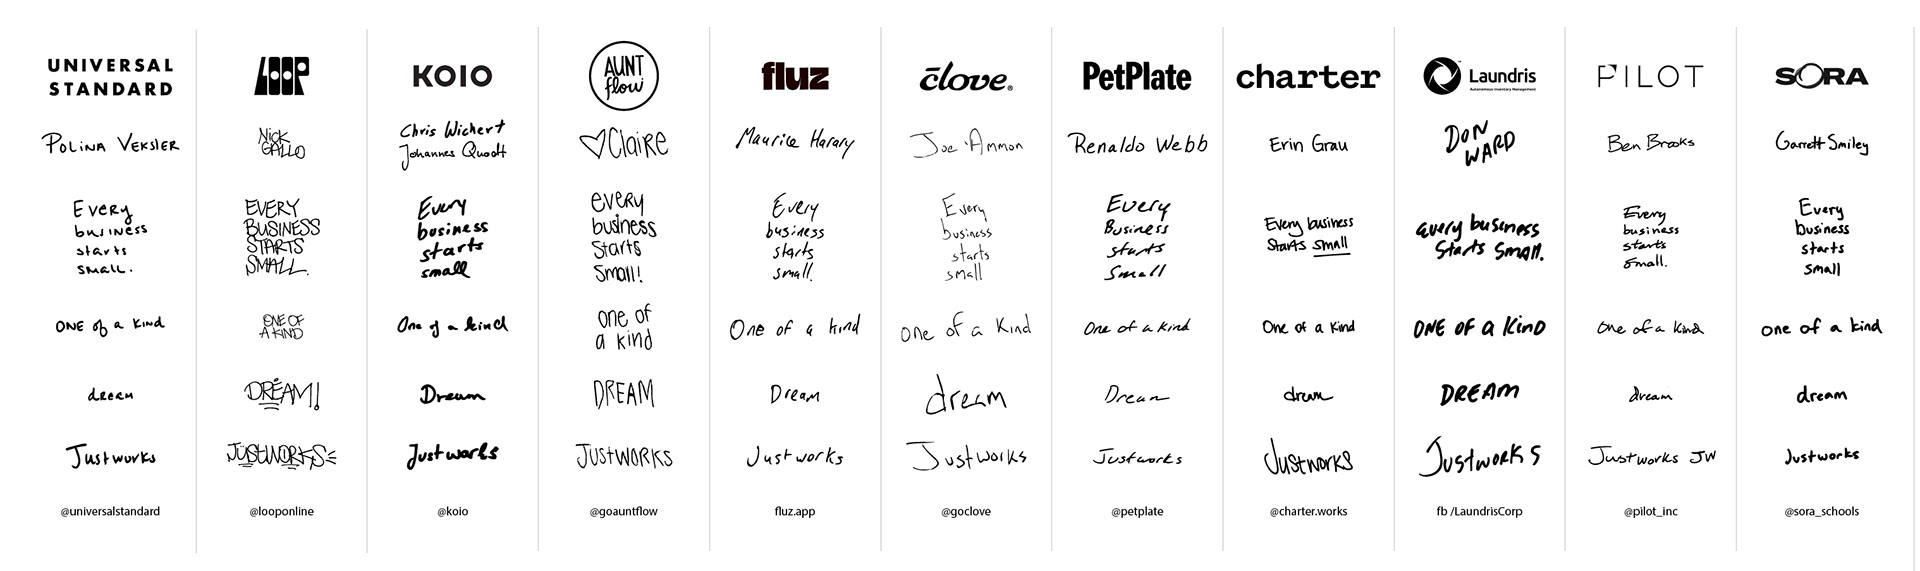 UNIVERSAL
STANDARD
POLINA VEKSLER
Every
business
starts
small.
ONE of a kind
dream
Justworks
@universalstandard
LOOP
NICK
GALLO
EVERY
BUSINESS
STARTS
SMALL.
ONE OF
A KIND
DREAM!
JUSTWORKS
@looponline
KOIO
Chris Wichert
Johannes Quodt
Every
business
starts
small
One of a kind
Dream
Justworks
@koio
AUNT
flow
Claire
every
business
Starts
Small!
one of
a kind
DREAM
JUSTWORKS
@goauntflow
fluz
Maurice Harary
Every
business
starts
small.
One of a kind
Dream
Justworks
fluz.app
clove®
Joe Ammon
Every
business
starts
small
one of a Kind
dream
Justworks
@goclove
PetPlate
Renaldo Webb
Every
Business
starts
Small
One of a kind
Dream
Justworks
@petplate
charter
Erin Grau
Every business
Starts small
One of a kind
dream
Justworks
@charter.works
Laundris
Autonomous Inventory Management
DON
WARD
every business
Starts Small.
ONE OF a KinD
DREAM
Justworks
fb /LaundrisCorp
PILOT
Ben Brooks
Every
business
starts
small.
One of a kind
dream
Justworks JW
@pilot_inc
SORA
Garrett Smiley
Every
business
starts
small
one of a kind
dream
Justworks
@sora_schools